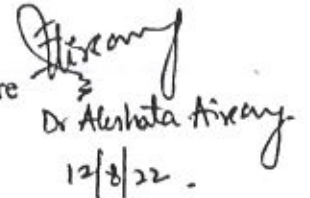 re
Dr Akshata Airany.
12/8/22.